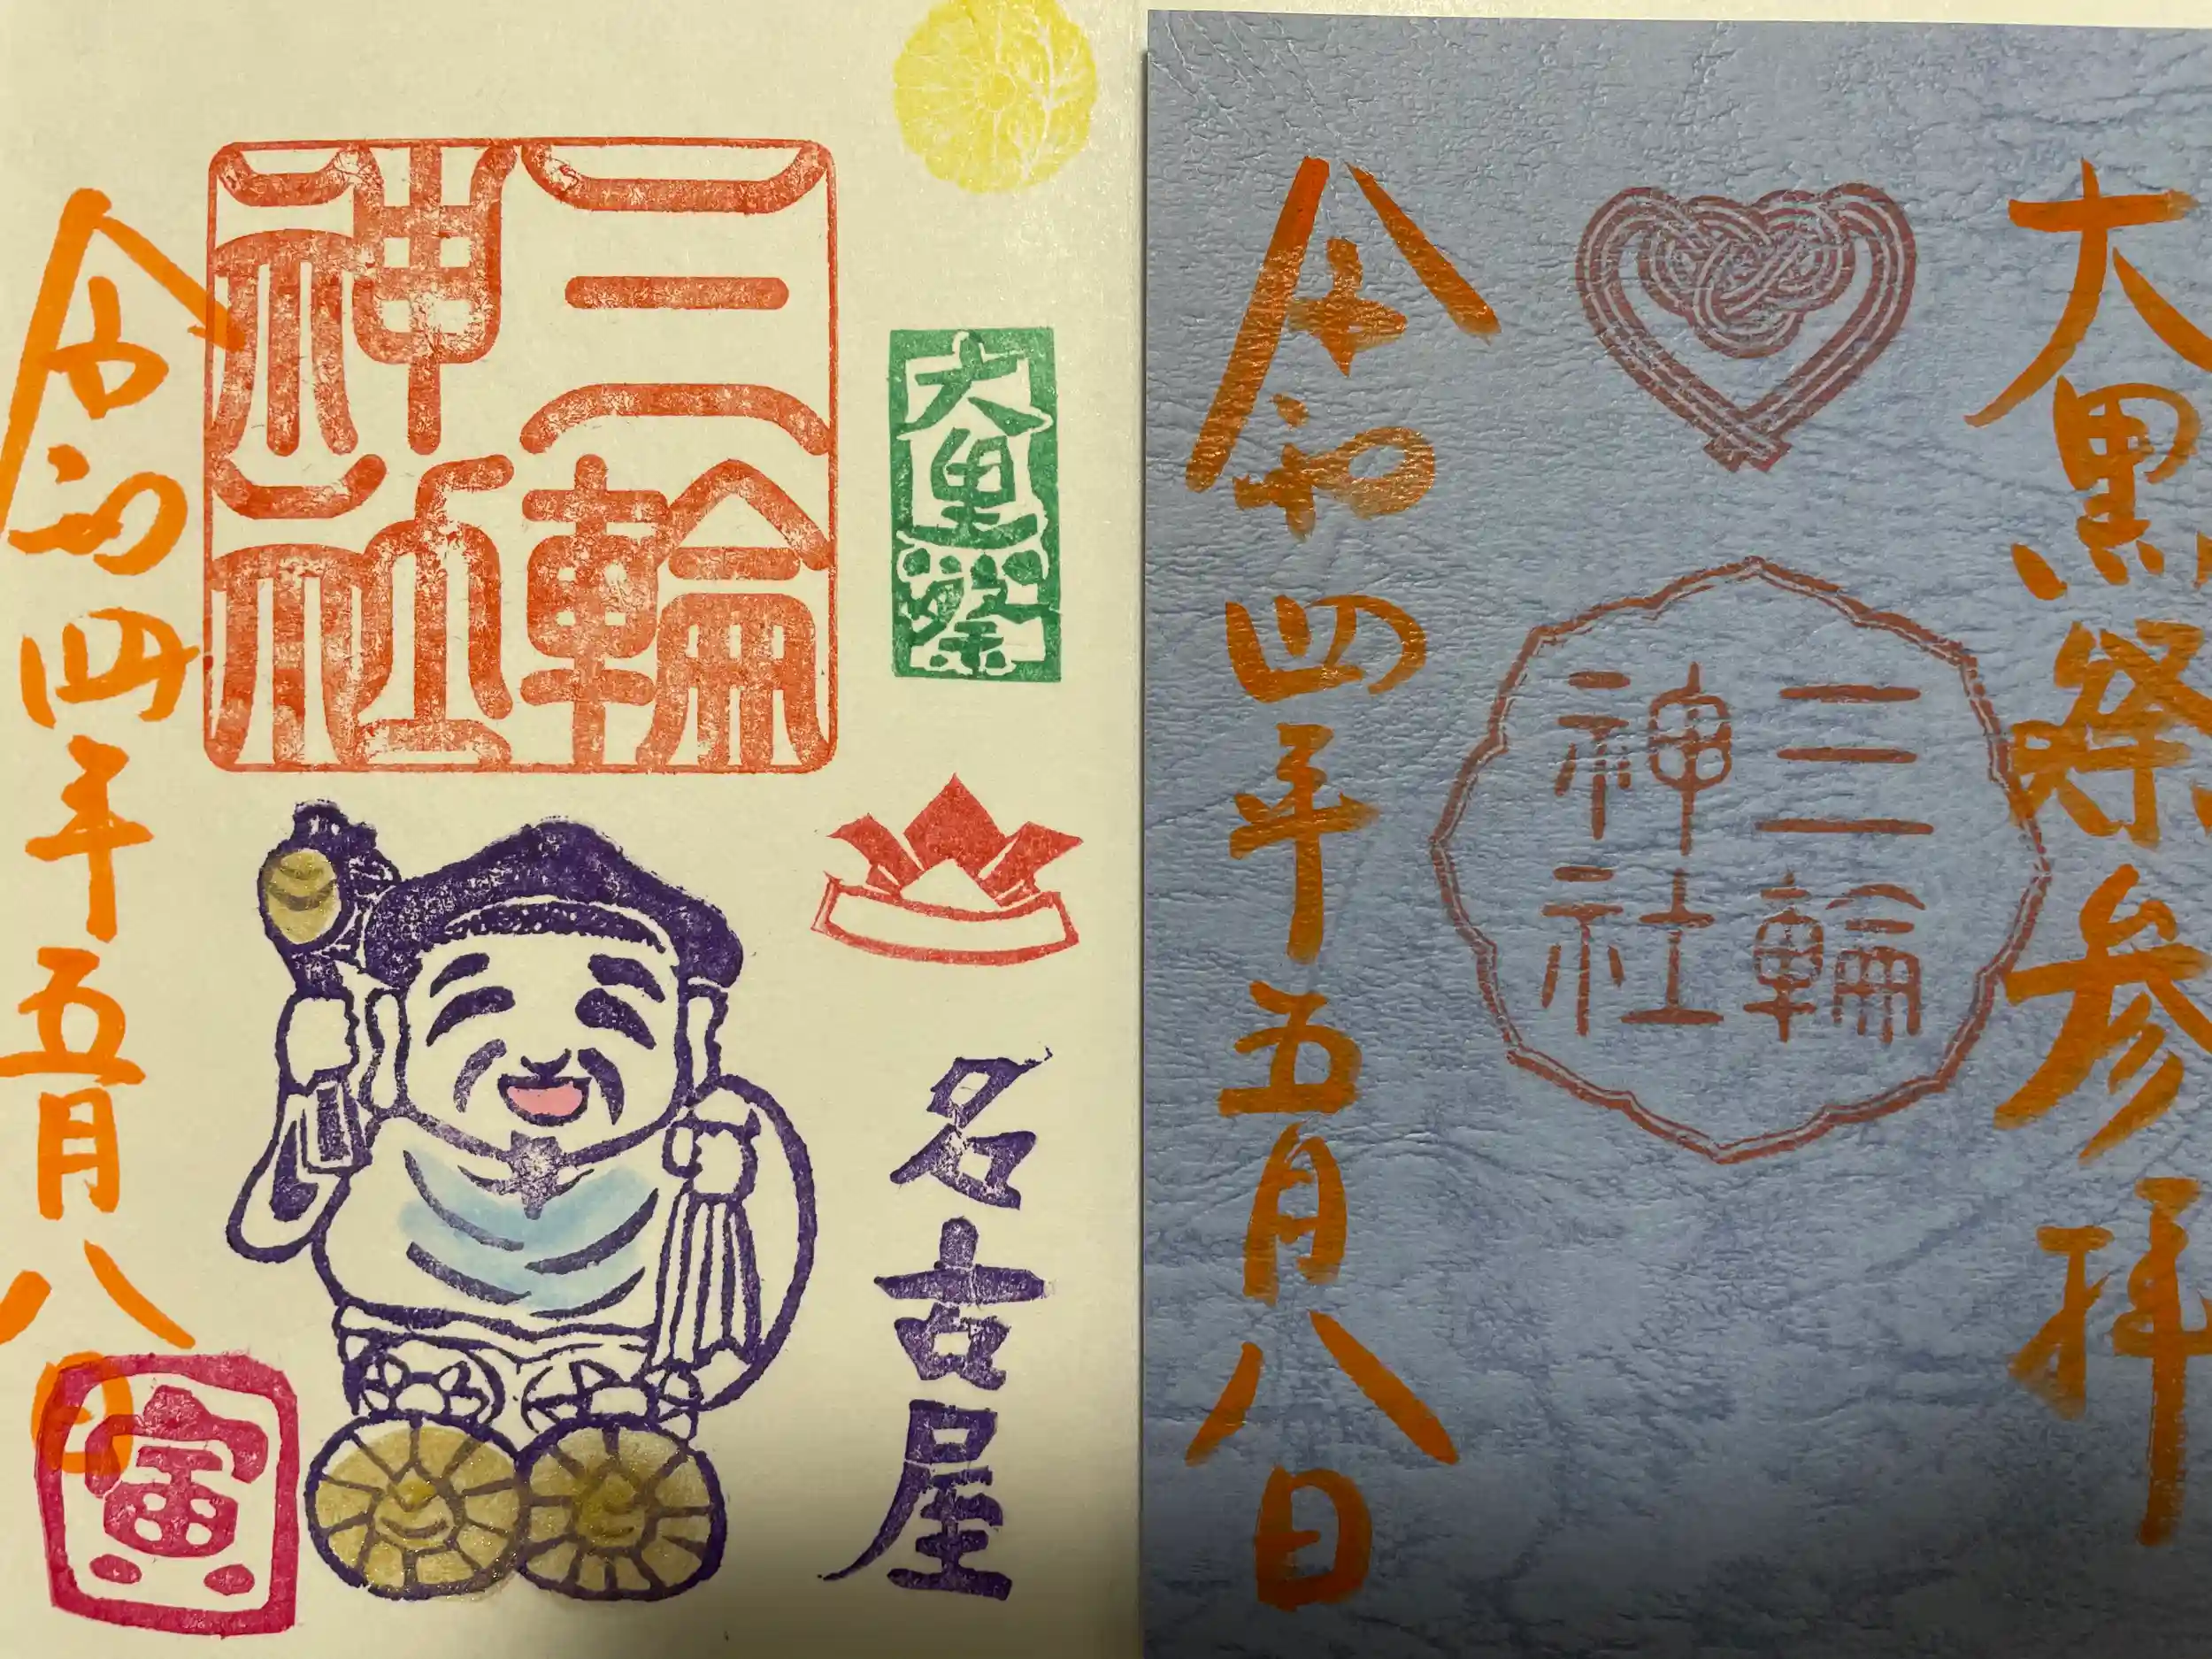 大黒祭参拝
三輪
神社
令和四年五月八日
大黒祭
名古屋
三輪
神社
令和四年五月八日
寅